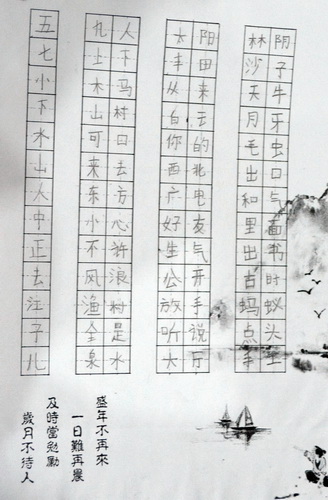 五
七
小
下
水
山
人
中
正
去
江
子
儿
九人
上下
木马
山村
可口
来去
东方
小心
不许
风浪
渔村
全是
泉水
太阳
丰田
从来
白云
你的
西北
广电
好友
生气
公开
放手
听说
大厅
林阴
沙子
天牛
月牙
毛虫
出口
和气
里面
出书
古时
蚂蚁
点头
盛年不再來
一日難再晨
及時當勉勵
歲月不待人